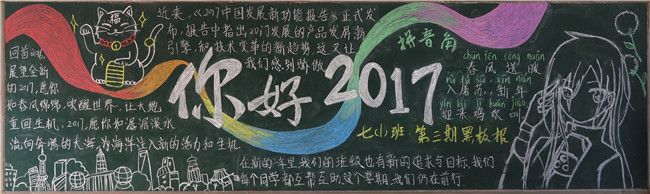 福
近来，《2017中国发展新功能报告》正式发
布，报告中指出2017发展的产品发展新
引擎，和技术变革的新趋势，这又让
我们感到骄傲
回首
展望全新
的2017，愿你
如春风绵绵，唤醒世界，让大地
重回生机，2017，愿你如潺潺溪水
流向奔腾的大海，为海洋注入新的活力和生机
你好2017
拼音角
chūn fēng sòng nuǎn
春风送暖
入屠苏，新年
迎来鸡欢叫
七小班·第三期黑板报
在新的一年里，我们的班级也有新的追求与目标，我们
每个同学都互帮互助，这个学期，我们仍在前行